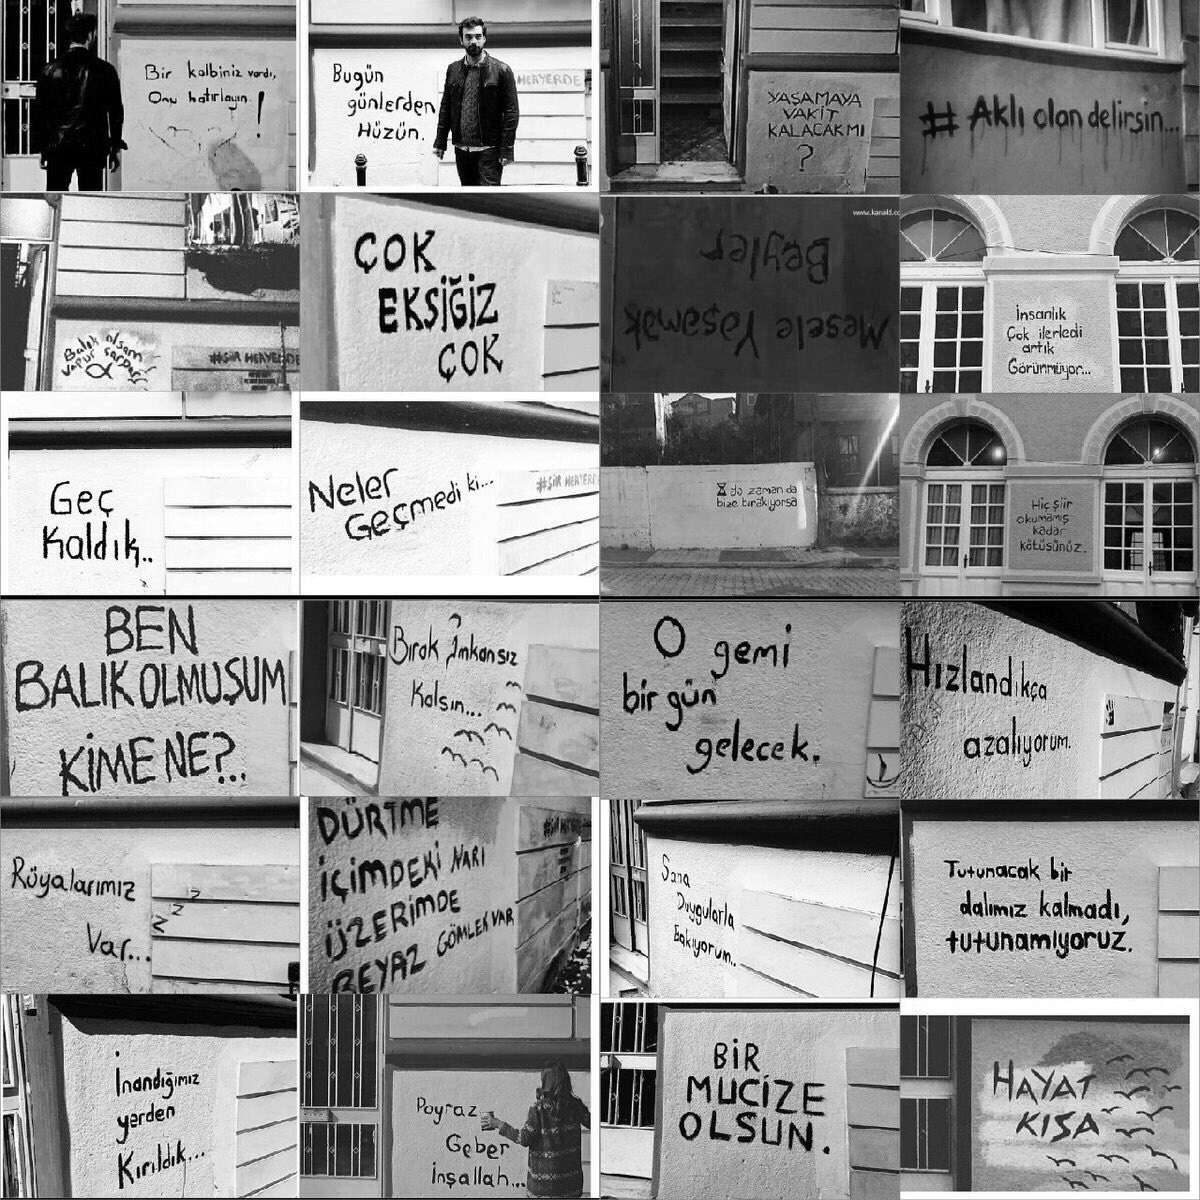 Bir kalbiniz vardı,
Onu hatırlayın!
Bugün
günlerden
Hüzün.
HERYERDE
YAŞAMAYA
VAKİT
KALACAKMI
?
# Aklı olan delirsin...
Balık olsam
vapur çarpar
#ŞİİR HERYERDE
ÇOK
EKSİĞİZ
ÇOK
www.kanald.co
Mesele Yaşamak
Beyler
İnsanlık
Çok ilerledi
artık
Görünmüyor...
Geç
Kaldık..
Neler
Geçmedi ki...
#ŞİİR HERYERDE
da zaman da
bize bırakıyorsa
Hiç şiir
okumamış
kadar
kötüsünüz.
BEN
BALIK OLMUŞUM
KİME NE?..
Bırak İmkansız
Kalsın...
O gemi
bir gün
gelecek.
Hızlandıkça
azalıyorum.
Rüyalarımız
Var...
z z z
DÜRTME
İÇİMDEKİ NARI
ÜZERİMDE
BEYAZ GÖMLEK VAR
Sana
Duygularla
Bakıyorum..
Tutunacak bir
dalımız kalmadı,
tutunamıyoruz.
İnandığımız
yerden
Kırıldık...
Poyraz
Geber
İnşallah...
BİR
MUCİZE
OLSUN.
HAYAT
KISA